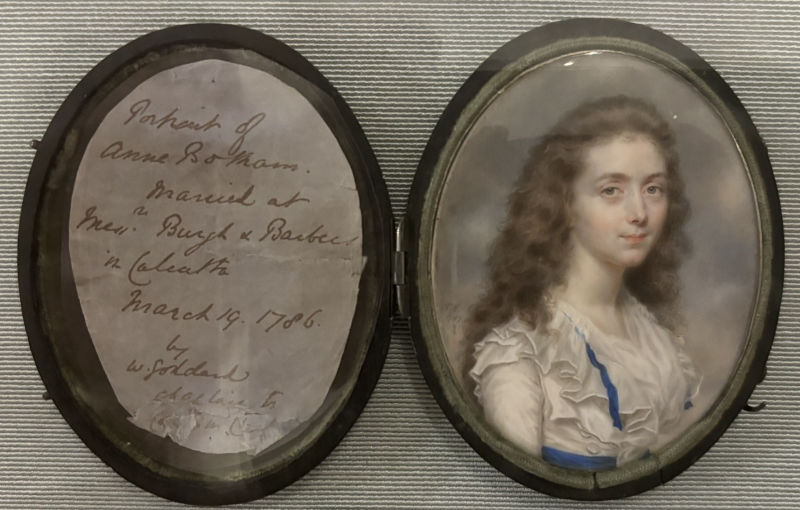 Portrait of
Anne Botham.
Married at
Mess.rs Burgh & Barbers
in Calcutta
March 19. 1786.
by
W. Goddard
chaplain to